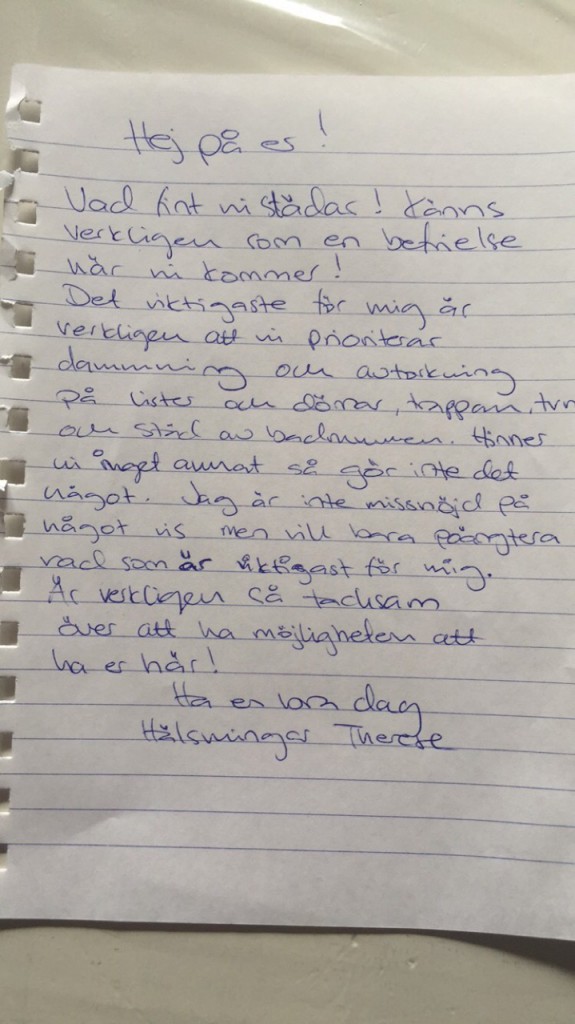 Hej på er!
Vad fint ni städar! Känns
verkligen som en befrielse
när ni kommer!
Det viktigaste för mig är
verkligen att ni prioriterar
dammning och avtorkning
på lister och dörrar, trappan, tvn
och städ av badrummen. Hinner
ni inget annat så gör inte det
något. Jag är inte missnöjd på
något vis men vill bara
vad som är viktigast för mig.
Är verkligen så tacksam
över att ha möjligheten att
ha er här!
Ha en bra dag
Hälsningar Therese